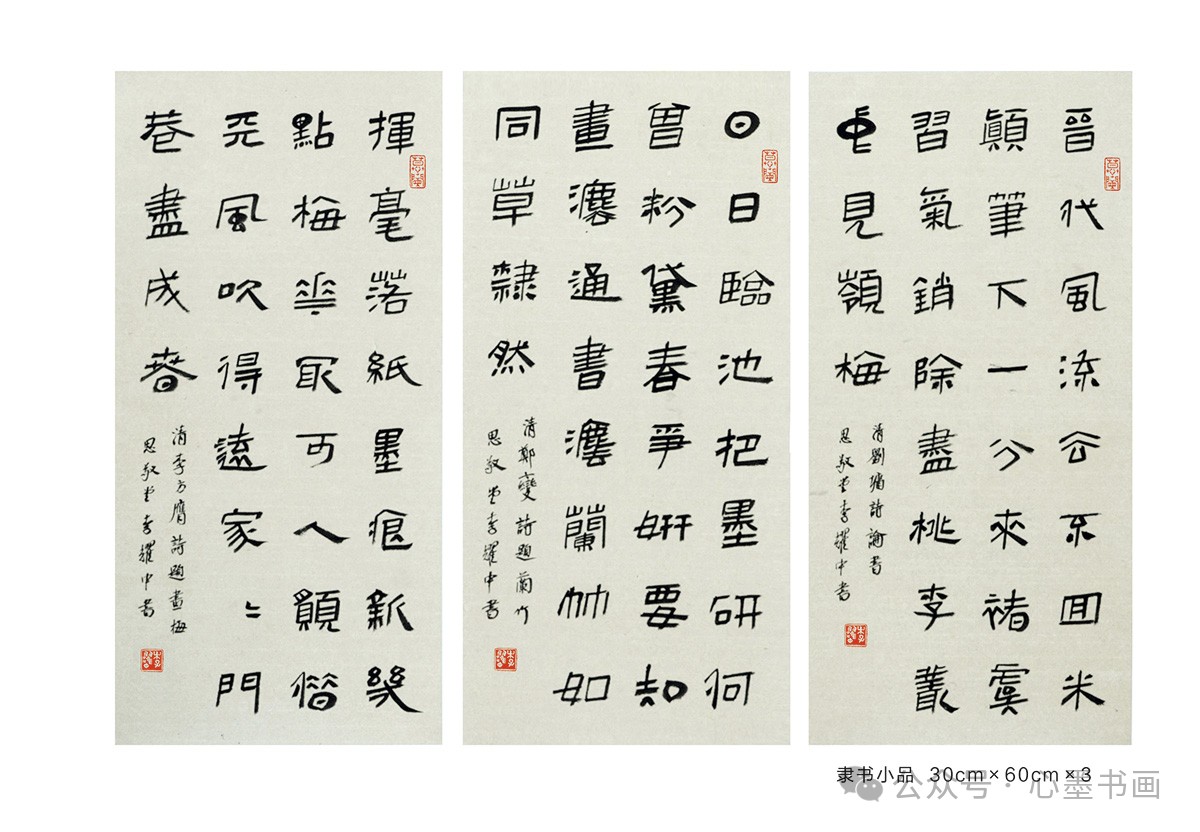 晉代風流去不回米
顛筆下一分來褚虞
習氣銷除盡桃李叢
中見嶺梅
清劉墉詩論書
思敬堂李耀中書
日日臨池把墨研何
曾粉黛春爭妍要知
畫灋通書灋蘭竹如
同草隸然
清鄭燮詩題蘭竹
思敬堂李耀中書
揮毫落紙墨痕新幾
點梅花最可人願借
天風吹得遠家〻門
巷盡成春
清李方膺詩題畫梅
思敬堂李耀中書
隶书小品 30cm×60cm×3
公众号·心墨书画